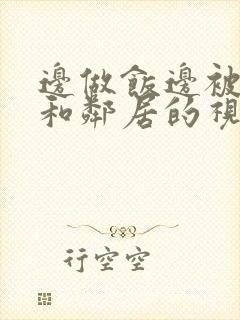 邊做飯邊被
和鄰居的視
行空空